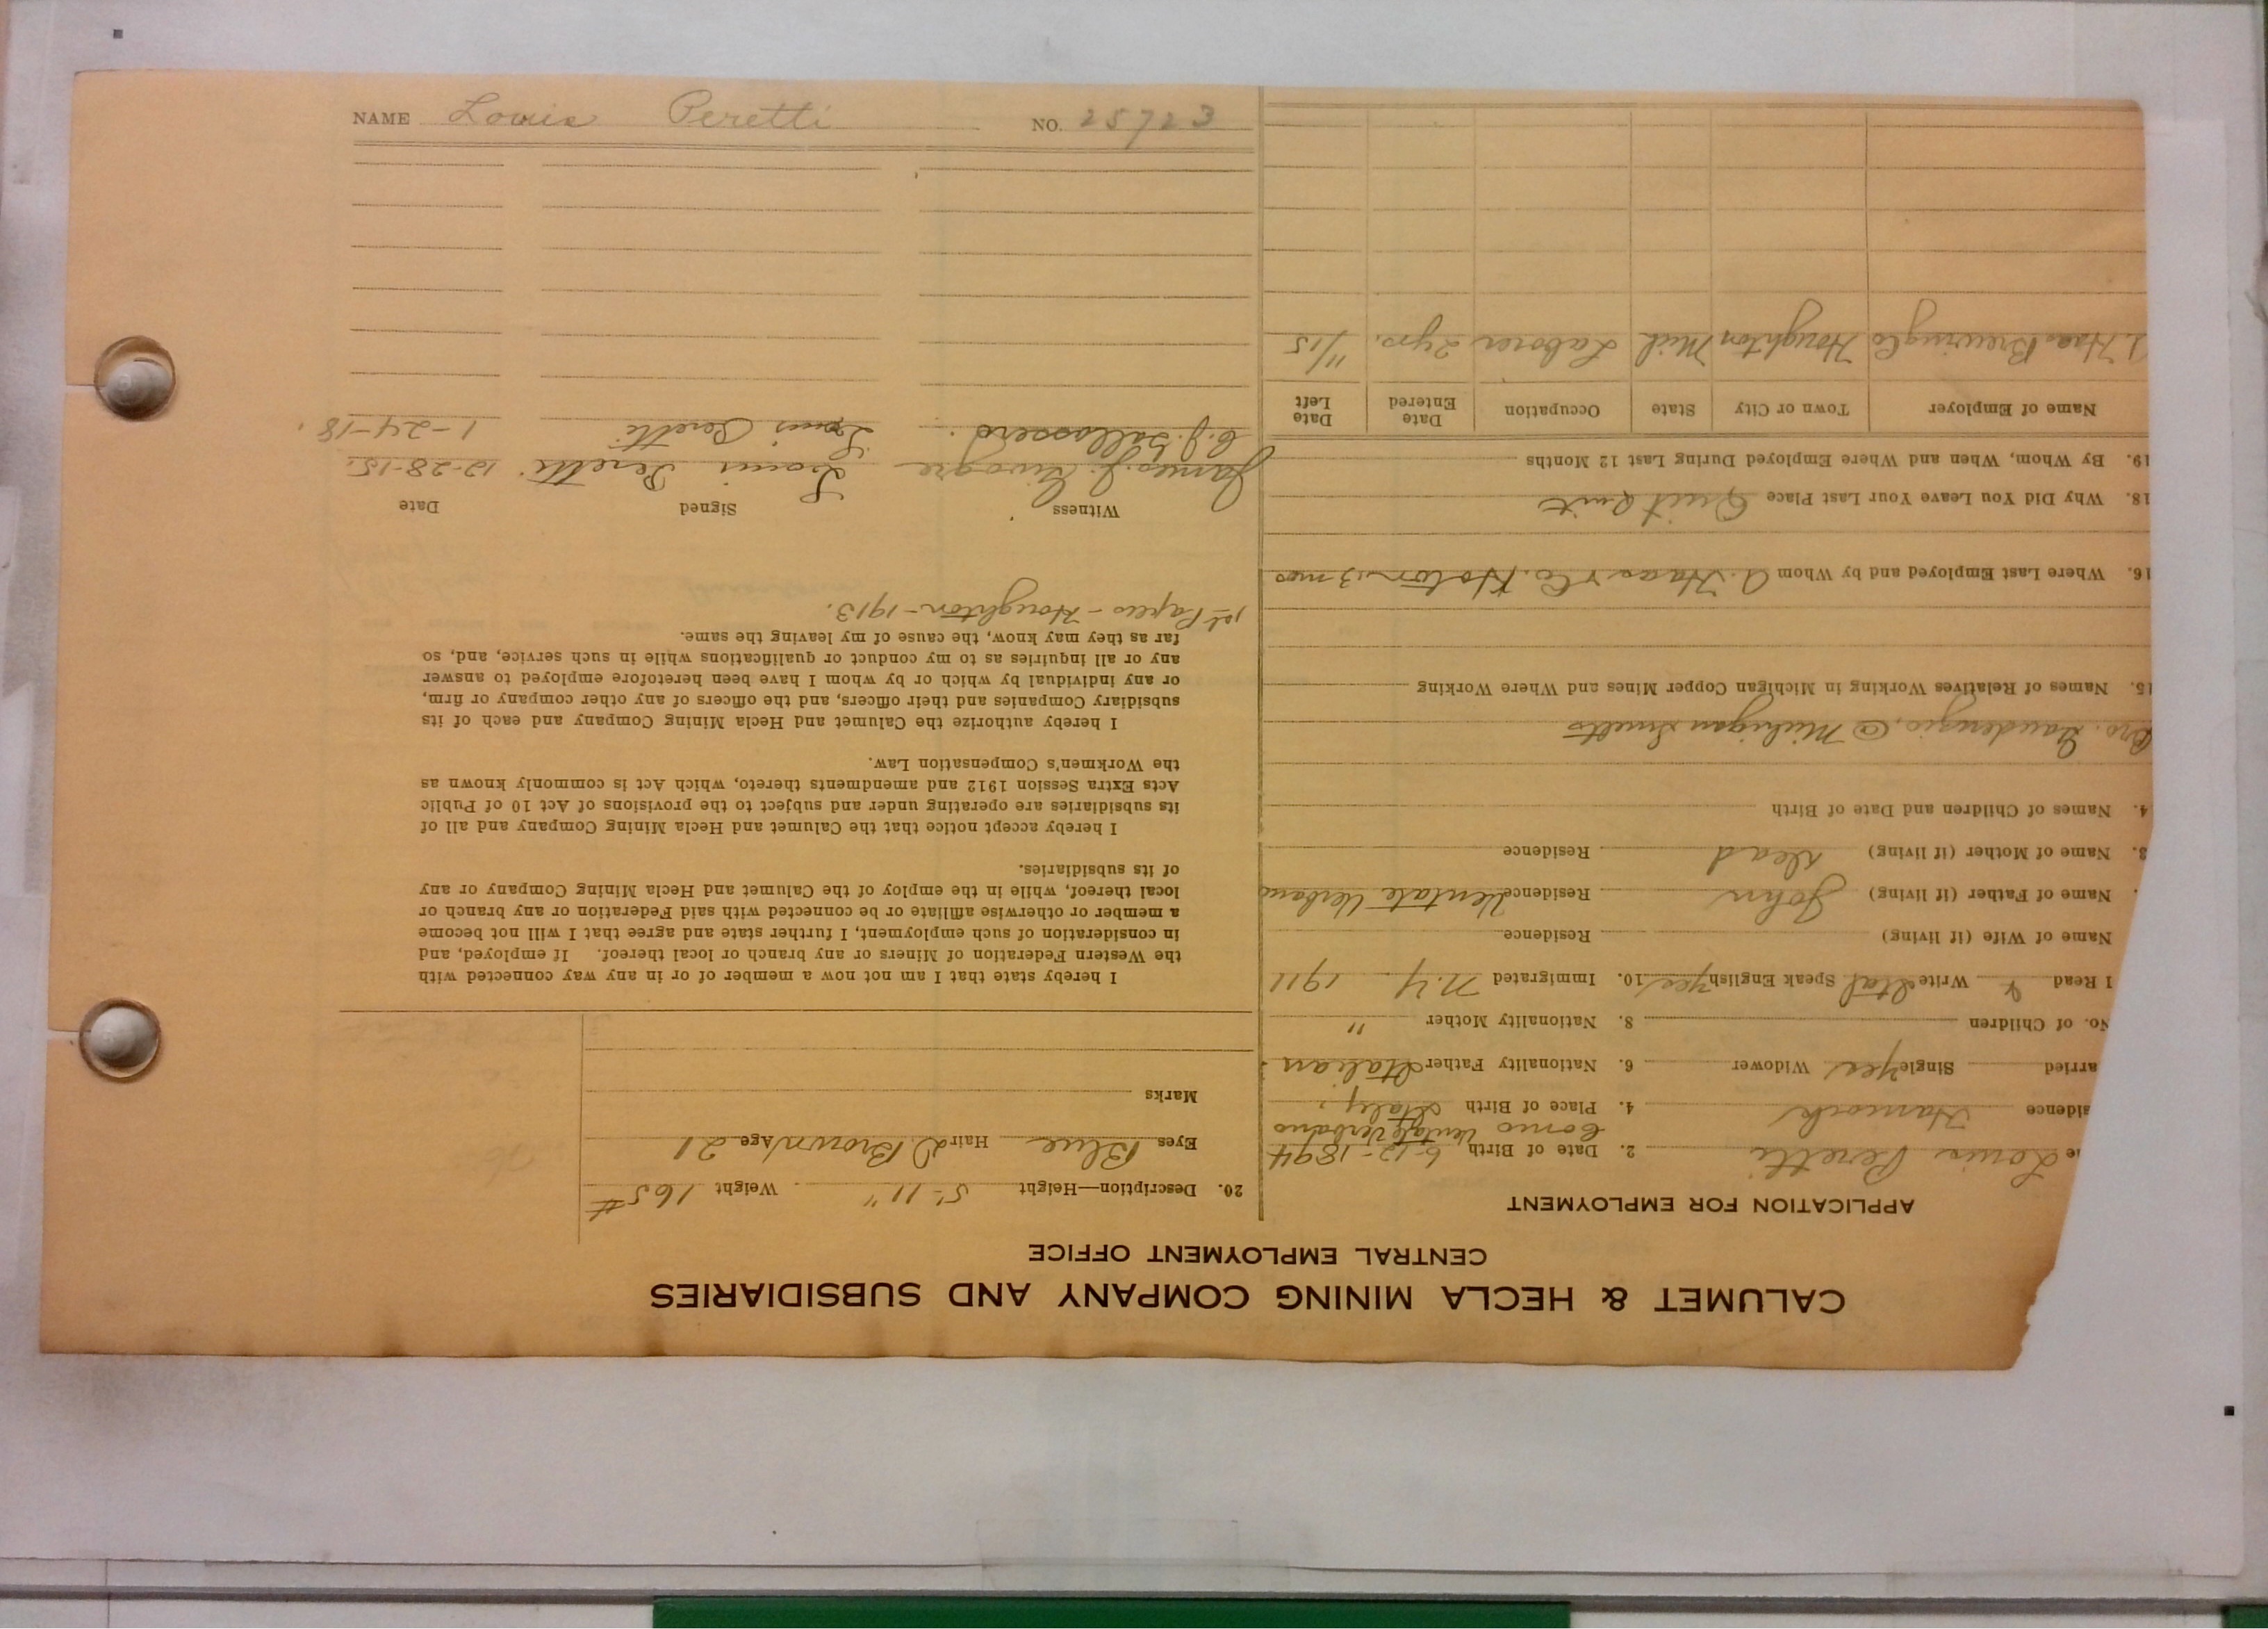 NAME Louis Peretti NO. 25723
CALUMET & HECLA MINING COMPANY AND SUBSIDIARIES
CENTRAL EMPLOYMENT OFFICE
APPLICATION FOR EMPLOYMENT
e Louis Peretti 2. Date of Birth 6-12-1894
Como Ventate Verbano
sidence Hancock 4. Place of Birth Italy
arried Single Yes Widower 6. Nationality Father Italian
No. of Children 8. Nationality Mother "
I Read & Write Ital Speak English yes 10. Immigrated N.Y. 1911
Name of Wife (if living) Residence
. Name of Father (if living) John Residence Ventate Verbano
3. Name of Mother (if living) dead Residence
4. Names of Children and Date of Birth
Bro. Gaudenzio, @ Michigan Smelts
15. Names of Relatives Working in Michigan Copper Mines and Where Working
16. Where Last Employed and by Whom A. Haas & Co. Hoton 3 mos
18. Why Did You Leave Your Last Place Quit Quit
19. By Whom, When and Where Employed During Last 12 Months
Name of Employer Town or City State Occupation Date Entered Date Left
Haas Brewing Co Houghton Mich Laborer 2 yrs. 11/15
20. Description—Height 5'-11" Weight 165#
Eyes Blue Hair D. Brown Age 21
Marks
I hereby state that I am not now a member of or in any way connected with
the Western Federation of Miners or any branch or local thereof. If employed, and
in consideration of such employment, I further state and agree that I will not become
a member or otherwise affiliate or be connected with said Federation or any branch or
local thereof, while in the employ of the Calumet and Hecla Mining Company or any
of its subsidiaries.
I hereby accept notice that the Calumet and Hecla Mining Company and all of
its subsidiaries are operating under and subject to the provisions of Act 10 of Public
Acts Extra Session 1912 and amendments thereto, which Act is commonly known as
the Workmen's Compensation Law.
I hereby authorize the Calumet and Hecla Mining Company and each of its
subsidiary Companies and their officers, and the officers of any other company or firm,
or any individual by which or by whom I have been heretofore employed to answer
any or all inquiries as to my conduct or qualifications while in such service, and, so
far as they may know, the cause of my leaving the same.
1st Papers - Houghton - 1913.
Witness Signed Date
James J. Louis Peretti 12-28-15.
C.J. Louis Peretti 1-24-18